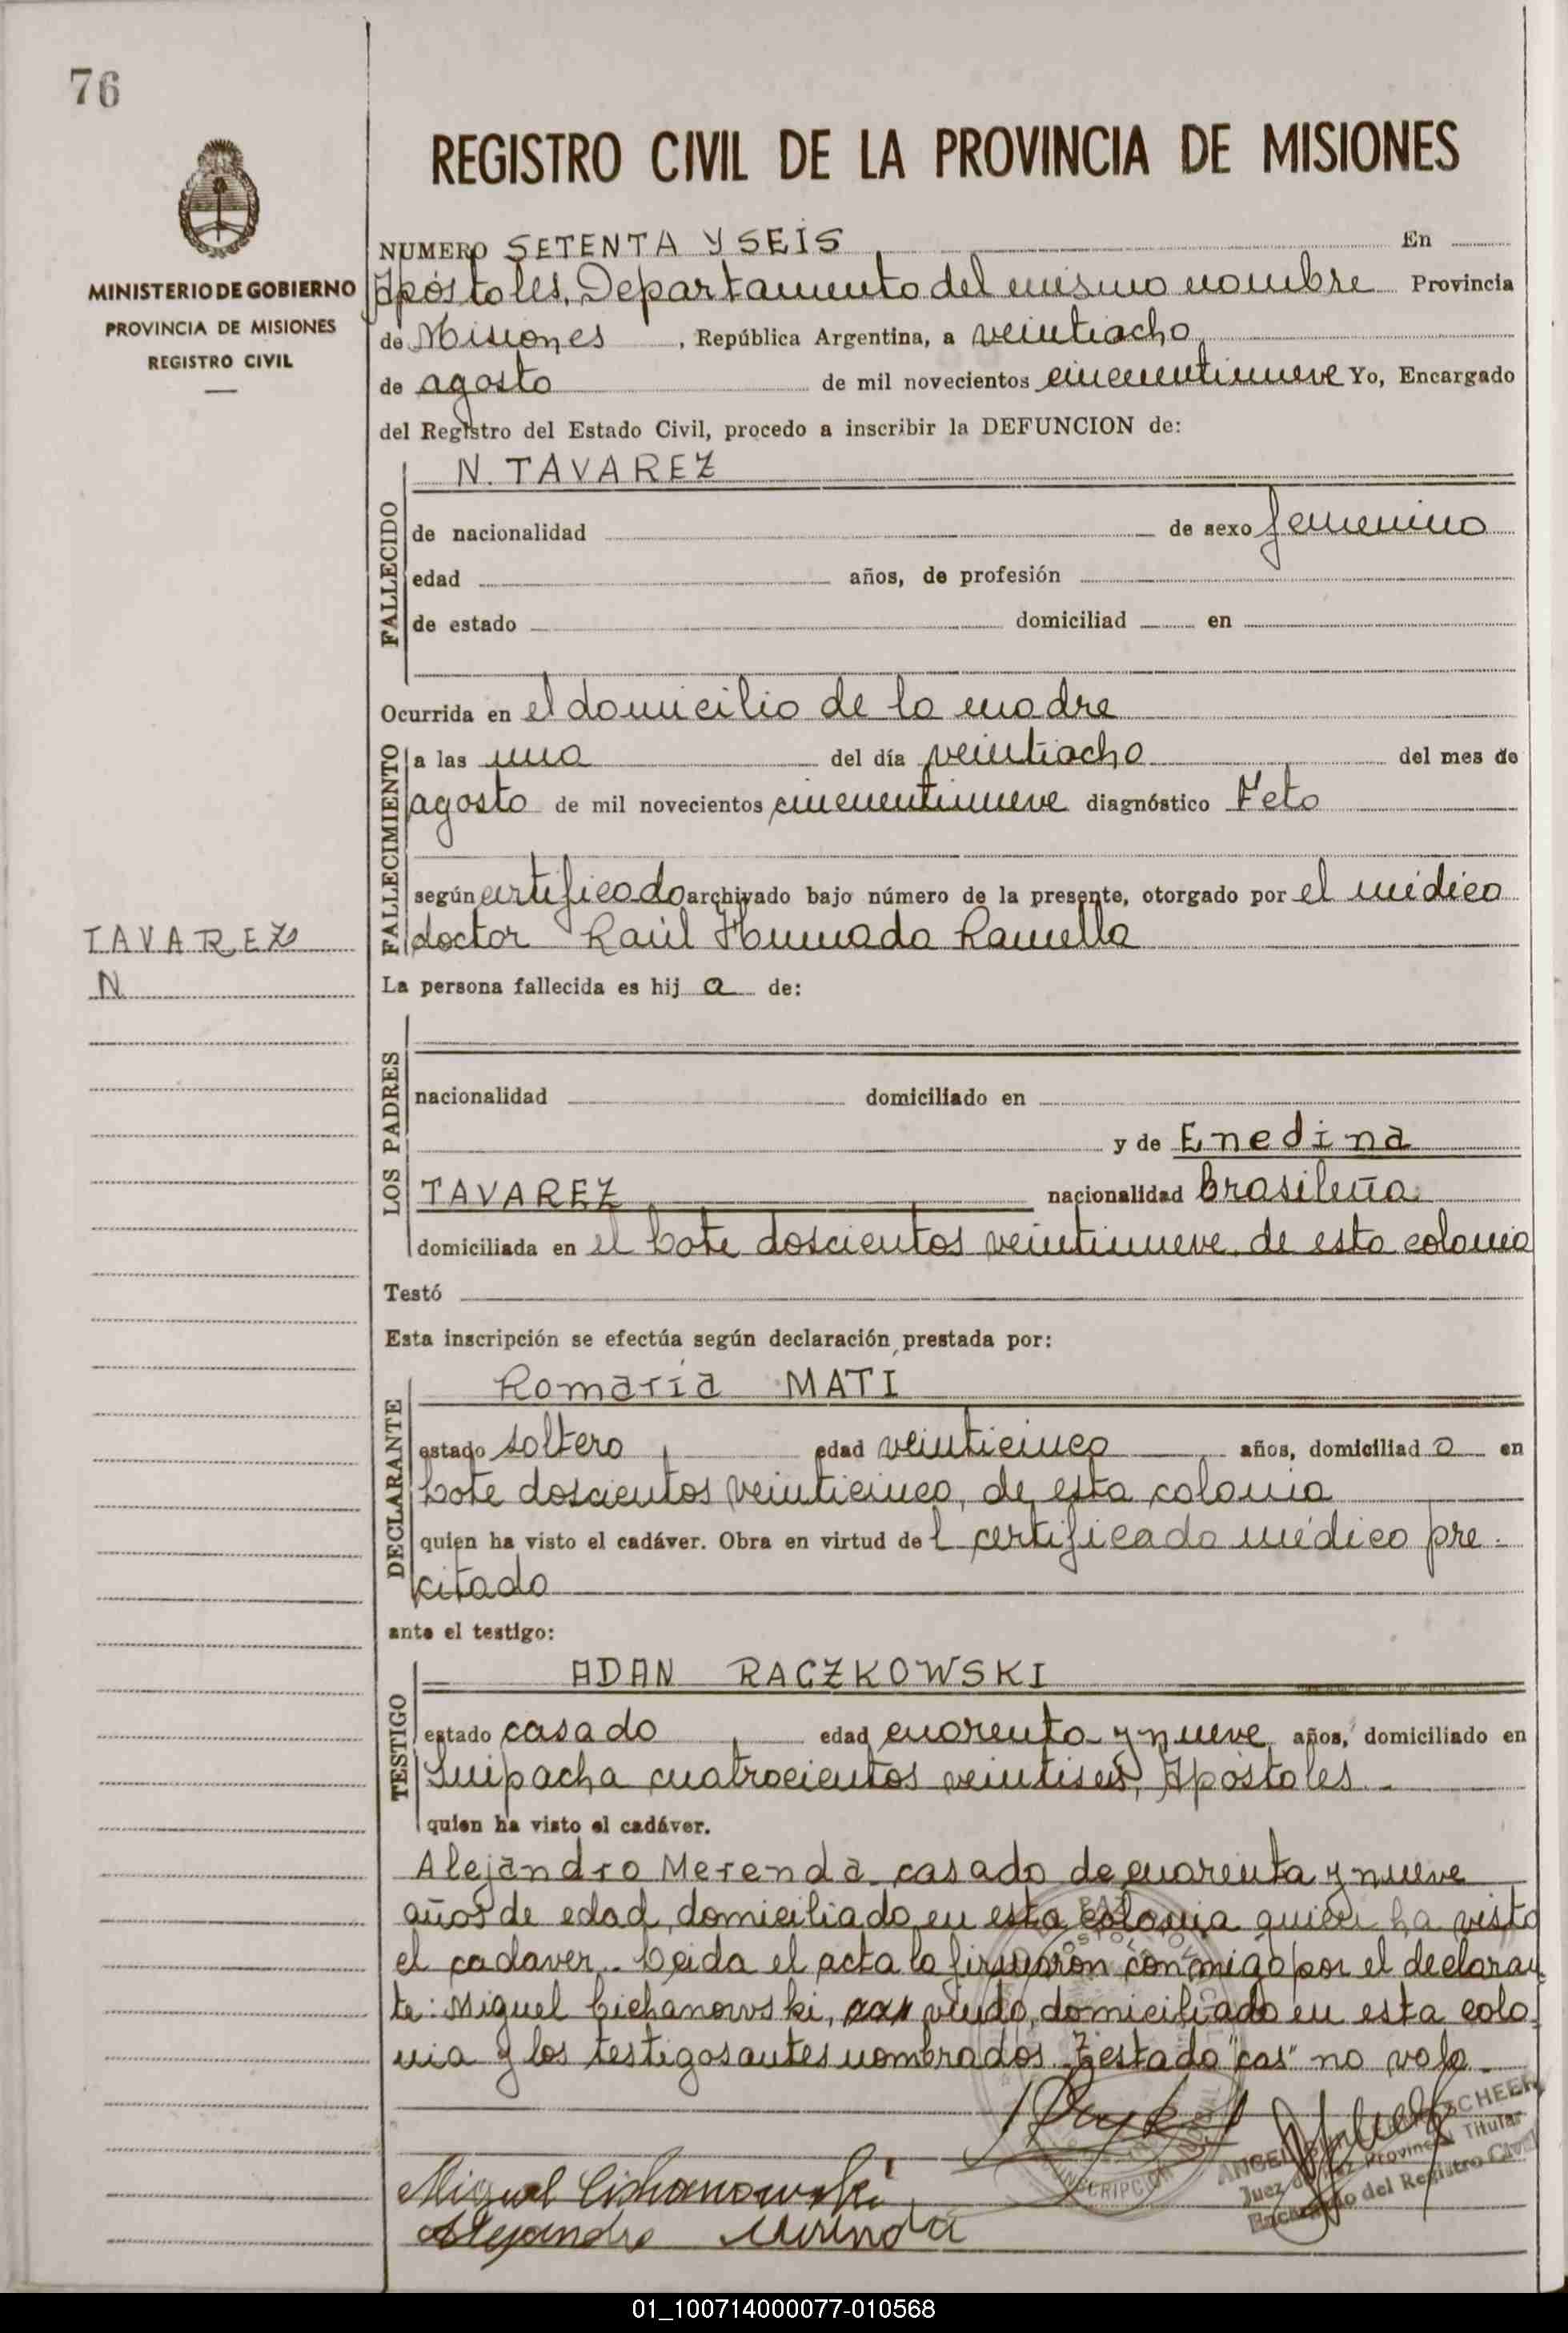 76
MINISTERIO DE GOBIERNO
PROVINCIA DE MISIONES
REGISTRO CIVIL
TAVAREZ
N
REGISTRO CIVIL DE LA PROVINCIA DE MISIONES
NUMERO SETENTA Y SEIS En
Apóstoles, Departamento del mismo nombre Provincia
de Misiones, República Argentina, a veintiocho
de agosto de mil novecientos cincuentinueve Yo, Encargado
del Registro del Estado Civil, procedo a inscribir la DEFUNCION de:
N. TAVAREZ
FALLECIDO
de nacionalidad de sexo femenino
edad años, de profesión
de estado domiciliad en
Ocurrida en el domicilio de la madre
FALLECIMIENTO
a las una del día veintiocho del mes de
agosto de mil novecientos cincuentinueve diagnóstico Feto
según certificado archivado bajo número de la presente, otorgado por el médico
doctor Raúl Humada Ramella
La persona fallecida es hij a de:
LOS PADRES
nacionalidad domiciliado en
y de Enedina
TAVAREZ nacionalidad brasileña
domiciliada en el Lote doscientos veintinueve, de esta colonia
Testó
Esta inscripción se efectúa según declaración prestada por:
Romaria MATI
DECLARANTE
estado soltero, edad veinticinco años, domiciliad o en
Lote doscientos veinticinco, de esta colonia
quien ha visto el cadáver. Obra en virtud de l certificado médico pre-
citado
ante el testigo:
ADAN RACZKOWSKI
TESTIGO
estado casado, edad cuarenta y nueve años, domiciliado en
Suipacha cuatrocientos veintiseis, Apóstoles.-
quien ha visto el cadáver.
Alejandro Merenda casado de cuarenta y nueve
años de edad, domiciliado en esta colonia quien ha visto
el cadaver.. Leida el acta la firmaron conmigo por el declaran
te: Miguel Cichanowski, viudo, domiciliado en esta colo
nia y los testigos antes nombrados. Testado "cas" no vale.-
ANGEL SCHEER
Juez de Paz Provincial Titular
Encargado del Registro Civil
INSCRIPCION
Miguel Cichanowski
Alejandro Merenda
01_100714000077-010568